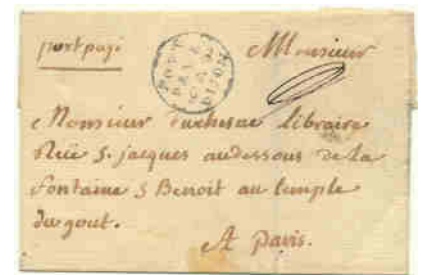 port payé
PORT PAYÉ DIJON
Monsieur
Monsieur duchesne libraire
Rüe S. jacques audessous de la
fontaine S Benoit au temple
du gout.
A paris.